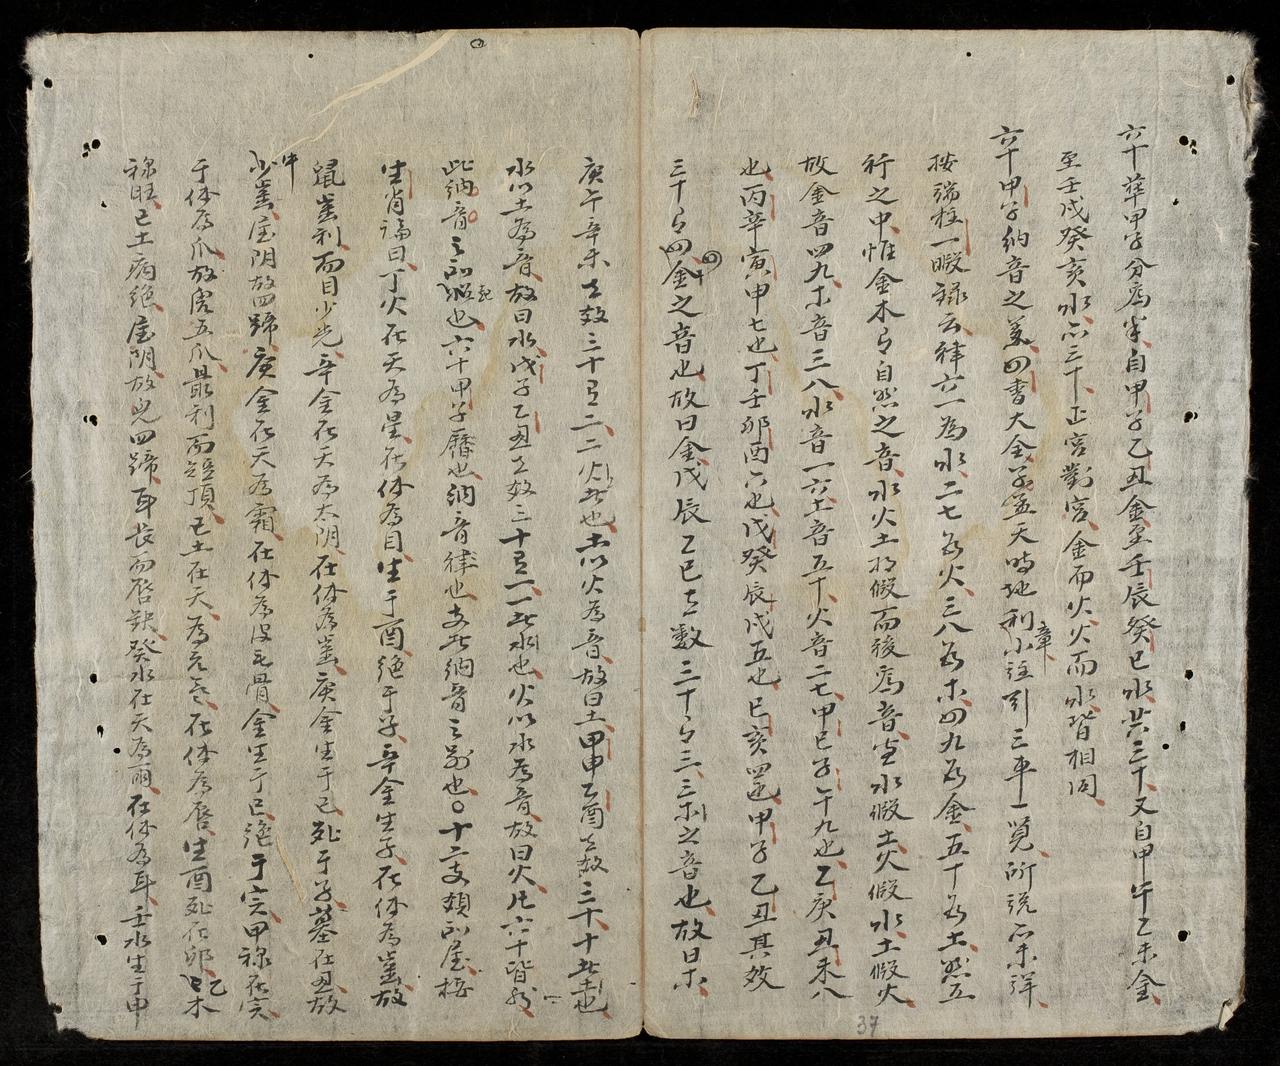 六十華甲子分為半自甲子乙丑金至壬辰癸巳水共三十又自甲午乙未金
至壬戌癸亥水亦三十正宮對宮金而火火而水皆相同
六十甲子納音之義四書大全孟天時地利章小註引三車一覽所說亦未詳
按瑞桂一暇錄云律六一為水二七為火三八為木四九為金五十為土然五
行之中惟金木自然之音水火土相假而後為音蓋水假土火假水土假火
故金音四九木音三八水音一六土音五十火音二七甲己子午九也乙庚丑未八
也丙辛寅申七也丁壬卯酉六也戊癸辰戌五也巳亥四也甲子乙丑其数
三十四四金之音也故曰金戊辰乙巳之數三十三三木之音也故曰木
庚午辛未之数三十二二火也土以火為音故曰土甲申乙酉之数三十十土也
水以土為音故曰水戊子乙丑之数三十一一水也火以水為音故曰火凡六十皆然
此納音之所起也六十甲子曆也納音律也支此納音之別也〇十二支類所屬按
生肖論曰丁火在天為星在体為目生于酉絕于子辛金生子在体為齒故
鼠齒利而目少光辛金在天為太陰在体為齒庚金生于巳死于子墓在丑故
牛少齒屬陰故四蹄庚金在天為霜在体為皮毛骨金生于巳絕于寅甲祿在寅
于体為爪故虎五爪最利而短項己土在天為元氣在体為唇生酉死在卯乙木
祿旺己土病絕屬陰故兔四蹄耳長而唇缺癸水在天為雨在体為耳壬水生于申
37